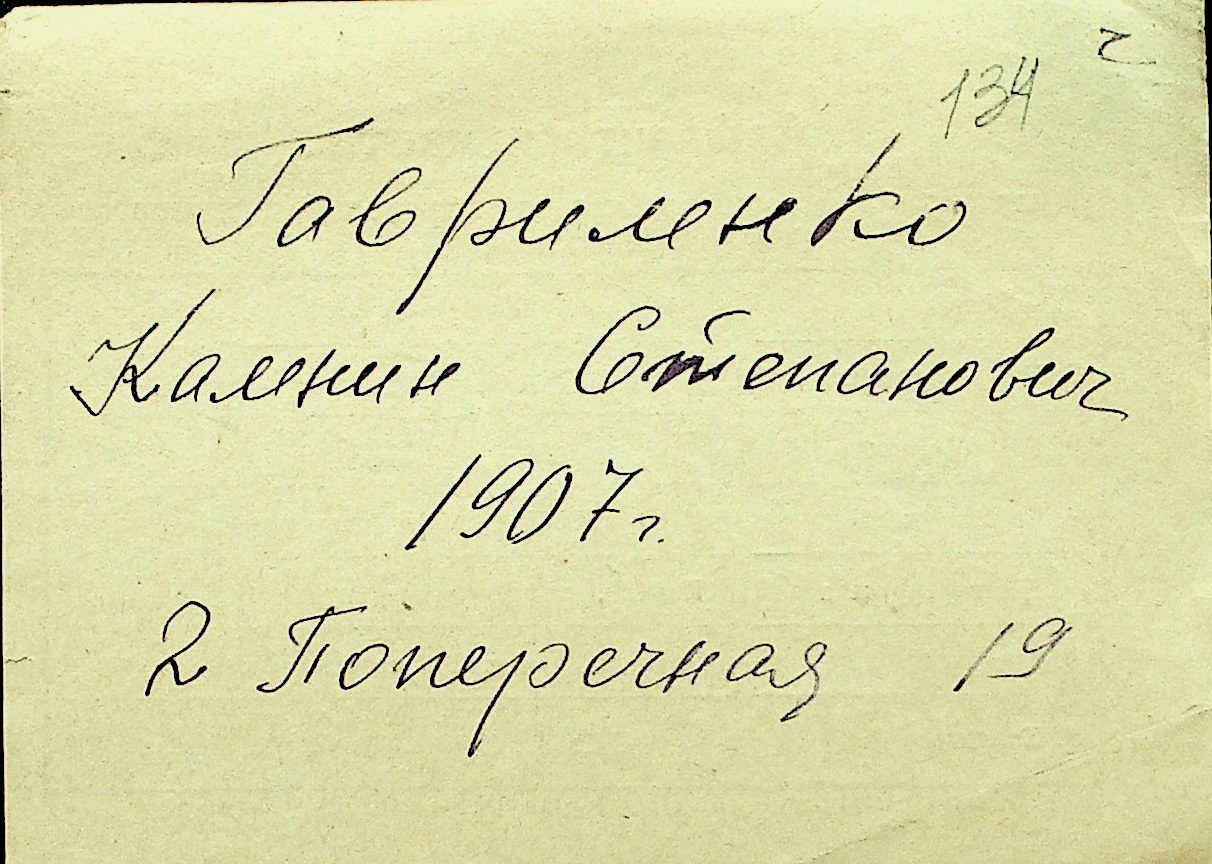 134
Гавриленко
Калинин Степанович
1907 г.
2 Поперечная 19